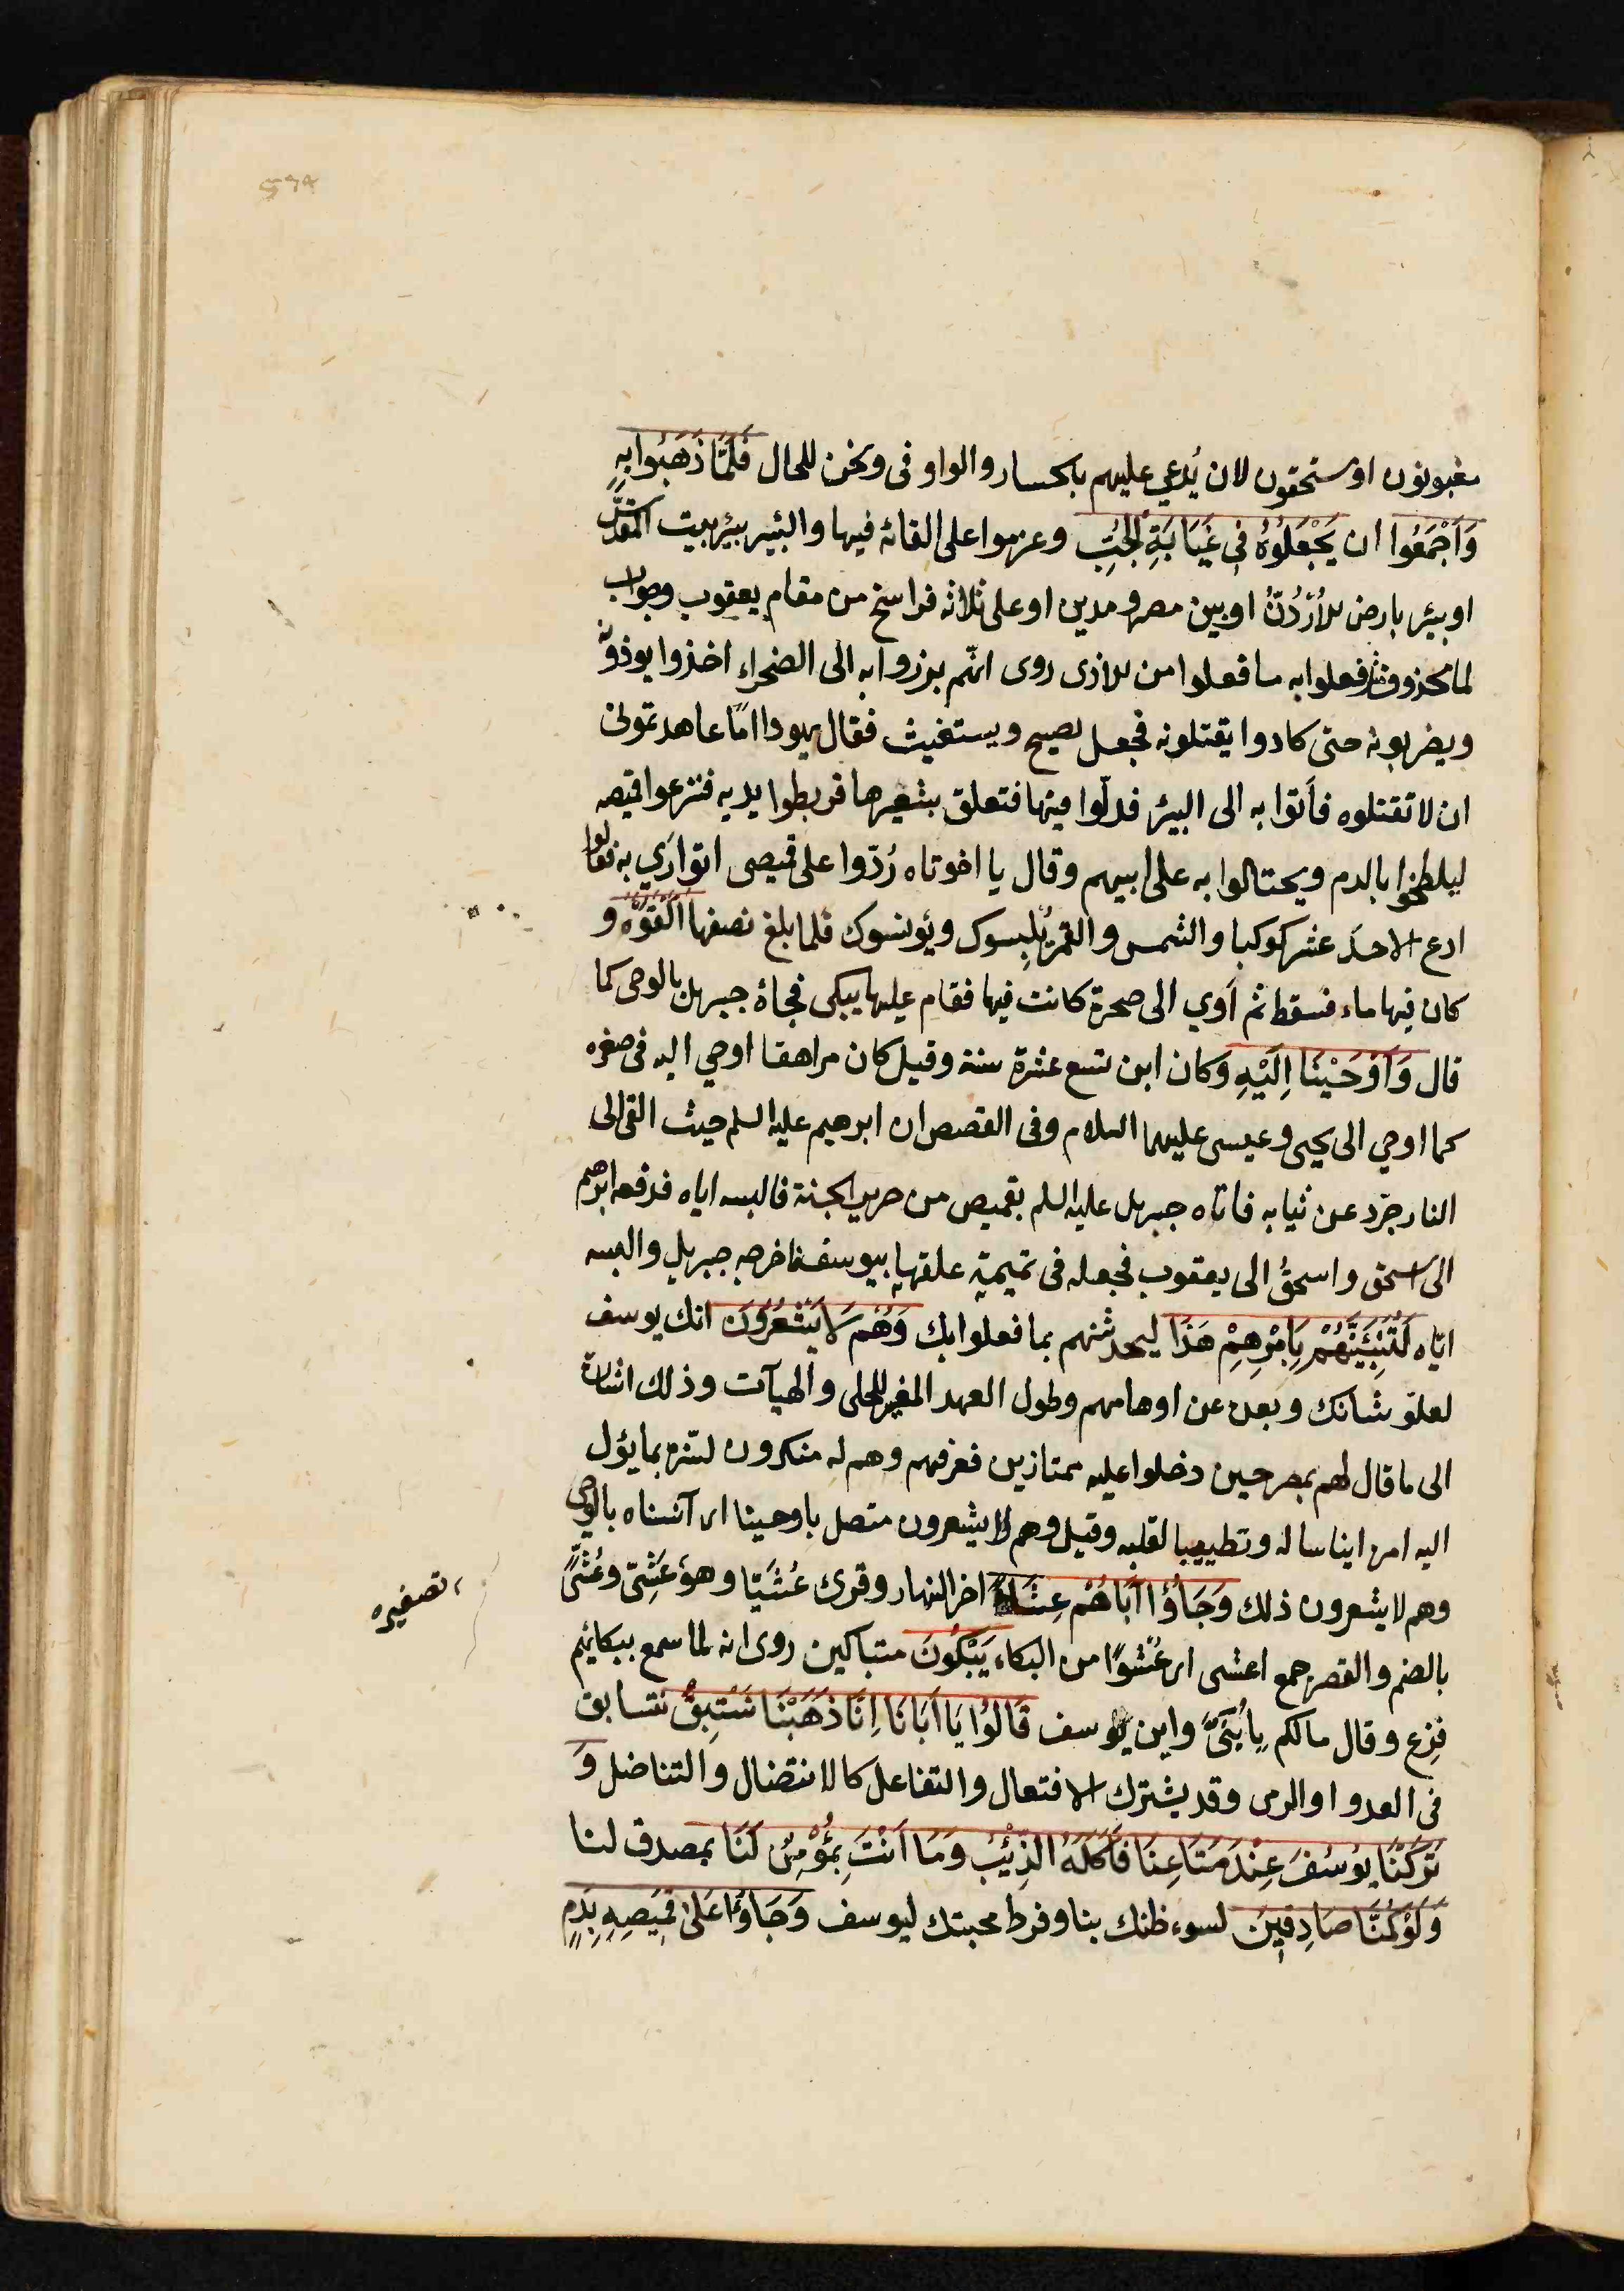 مغبونون او مستحقون لان يُدعي عليهم بالخسار والواو فى ونحن للحال فَلَمَّا ذَهَبُوا بِهِ
وَاَجْمَعُوا ان يَجْعَلُوهُ فِى غَيَابَةِ الْجُبِّ وعزموا على القائه فيها والبئر بيئر بيت المقدس
او بيئر بارض الأُرْدُنّ او بين مصر ومدين او على ثلاثه فراسخ من مقام يعقوب وجواب
لما محذوف مثل فعلوا به ما فعلوا من الاذى روى انّهم برزوا به الى الصحراء اخذوا يوذونه
ويضربونه حتى كادوا يقتلونه فجعل يصيح ويستغيث فقال يهودا امّا عاهدتمونى
ان لا تقتلوه فأتوا به الى البيئر فدلّوا فيها فتعلق بشفيرها فربطوا يديه فنزعوا قميصه
ليلطخوا بالدم ويحتالوا به على ابيهم وقال يا اخوتاه رُدّوا على قميصى اتوارَي به فقالوا
ادع الاحدَ عشر كوكبا والشمس والقمر يُلبِسوك ويُونسوك فلما بلغ نصفها اَلْقَوْهُ و
كان فيها ماء فسقط ثم آوي الى صخرة كانت فيها فقام عليها يبكى فجاءهُ جبريل بالوحى كما
قال وَاَوْحَيْنَا اِلَيْهِ وكان ابن تسع عشرة سنة وقيل كان مراهقا اوحي اليه فى صغره
كما اوحي الى يحيى وعيسى عليهما السلام وفى القصص ان ابرهيم عليه السلم حيث القى الى
النار جرّد عن ثيابه فاتاه جبريل عليه السلم بقميص من حرير الجنة فالبسه اياه فدفعه ابرهيم
الى اسحق واسحقُ الى يعقوب فجعله فى تميمةٍ علقها بيوسف فاخرجه جبريل والبسه
ايّاه لَتُنَبِّئَنَّهُمْ بِاَمْرِهِمْ هَذَا ليحدثنهم بما فعلوا بك وَهُم لَا يَشْعُرُونَ انك يوسف
لعلوّ شانك وبعده عن اوهامهم وطول العهد المغير للحلى والهيآت وذلك اشارة
الى ما قال لهم بمصر حين دخلوا عليه ممتازين فعرفهم وهم له منكرون بشّره بما يؤل
اليه امره ايناسا له وتطييبا لقلبه وقيل وهم لا يشعرون متصل باوحينا اى آنسناه بالوحى
وهم لا يشعرون ذلك وَجَاؤُا اَبَاهُمْ عِشَاءً اخر النهار وقرئ عُشَيًّا وهو عَشِىّ وعُشًى
تصغيره
بالضم والقصر جمع اعشى اى عُشْوًا من البكاء يَبْكُونَ متباكين روى انه لما سمع ببكائهم
فزِع وقال مالكم يا بُنَىَّ واين يوسف قَالُوْا يَا اَبَانَا اِنَّا ذَهَبْنَا نَسْتَبِقُ نتسابق
فى العدو او الرمى وقد يشترك الافتعال والتفاعل كالانتضال والتناضل وَ
تَرَكْنَا يُوسُفَ عِنْدَ مَتَاعِنَا فَاَكَلَهُ الذِّئْبُ وَمَا اَنْتَ بِمُؤْمِنٍ لَنَا بمصدق لنا
وَلَوْ كُنَّا صَادِقِينَ لسوء ظنك بنا وفرط محبتك ليوسف وَجَاؤُا عَلَى قَمِيصِهِ بِدَمٍ